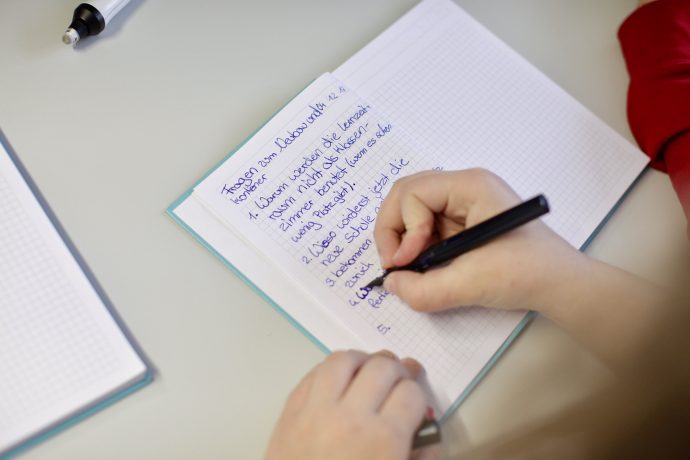 Fragen zum Neubau und 12.
kontener
1. Warum werden die Lernzeit-
raum nicht als Klassen-
zimmer benutzt (wenn es schon
wenig Platz gibt).
2. Wieso wird erst jetzt die
neue Schule
3. bekommen
zurück
4.
5.